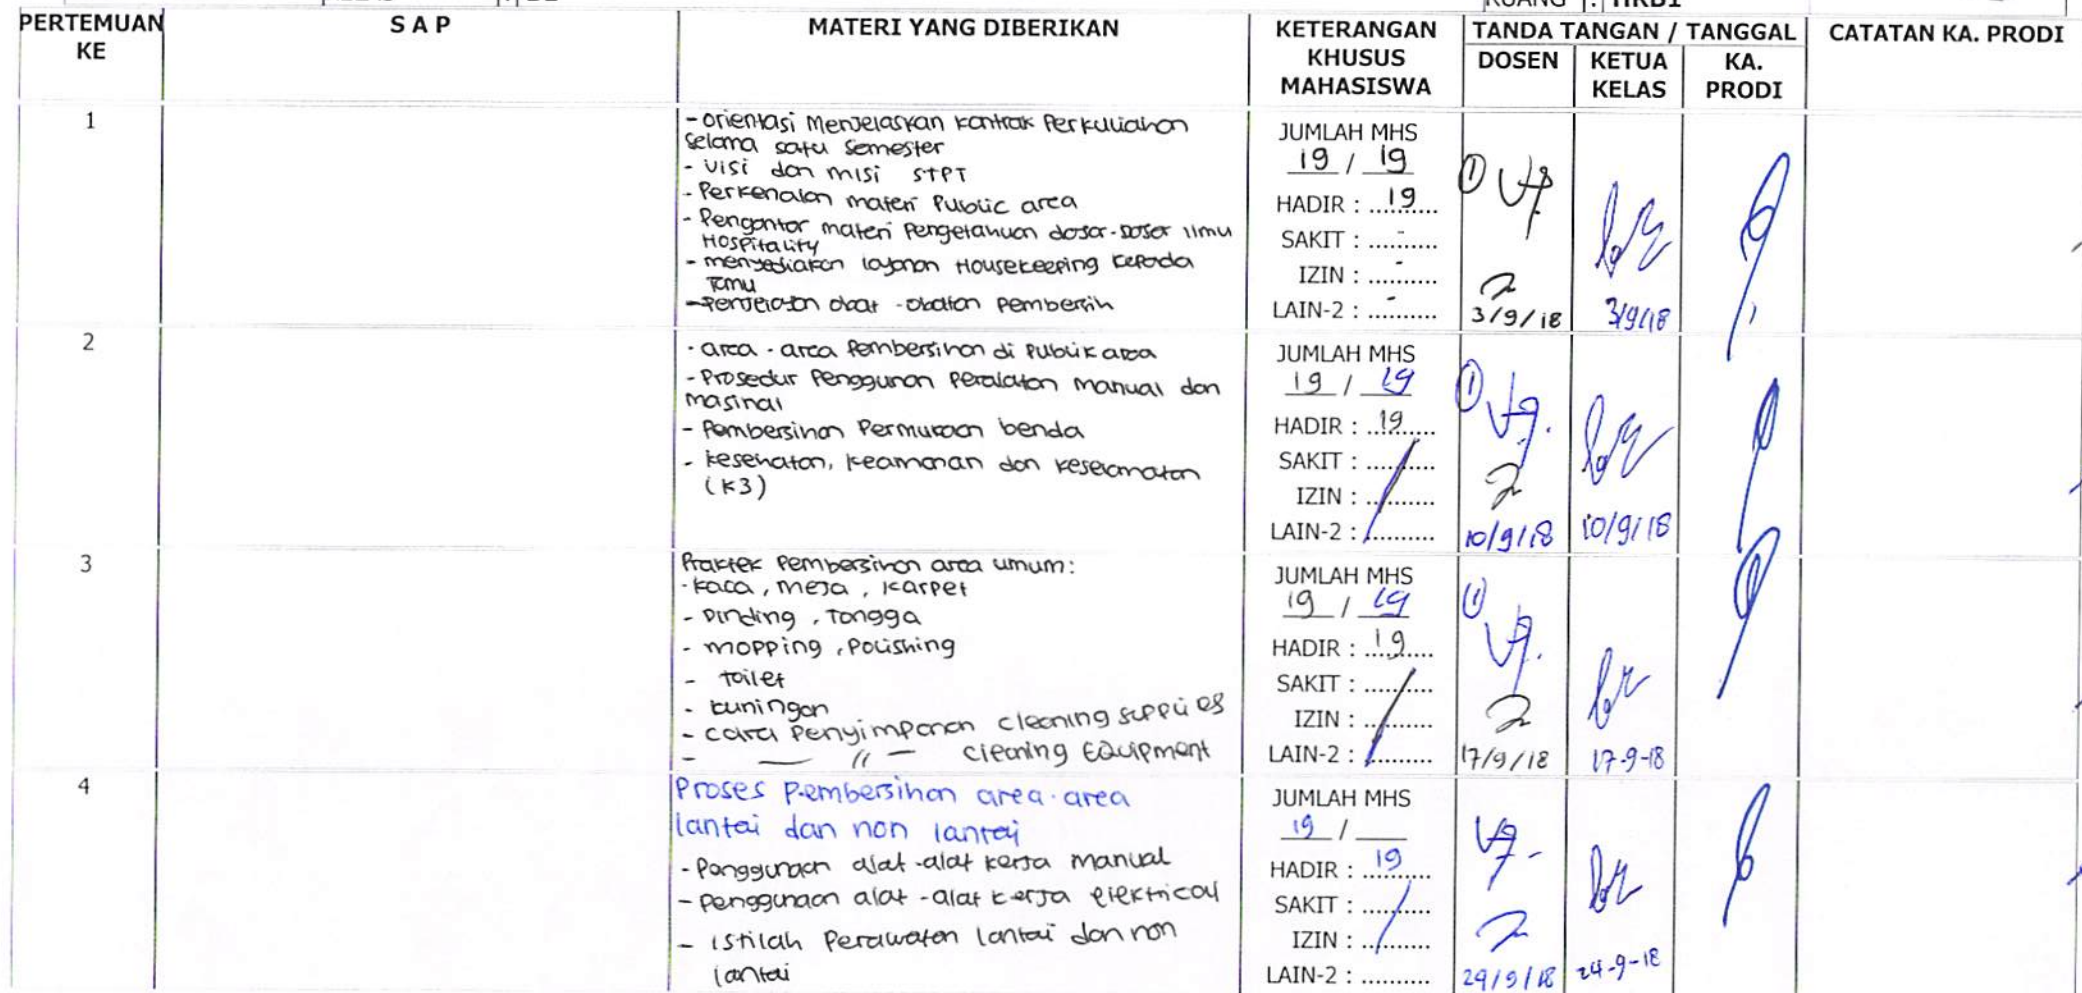 RUANG : HRD1
PERTEMUAN KE
S A P
MATERI YANG DIBERIKAN
KETERANGAN KHUSUS MAHASISWA
TANDA TANGAN / TANGGAL
DOSEN
KETUA KELAS
KA. PRODI
CATATAN KA. PRODI
1
- orientasi Menjelaskan kontrak Perkuliahan
selama satu semester
- visi dan misi STPT
- Perkenalan materi Public area
- Pengantar materi Pengetahuan dasar-Dasar Ilmu
Hospitality
- menyediakan layanan Housekeeping kepada
Tamu
- Penjelasan obat - obatan Pembersih
JUMLAH MHS
19 / 19
HADIR : 19
SAKIT : -
IZIN : -
LAIN-2 : -
3/9/18
3/9/18
2
- area - area Pembersihan di Publik area
- Prosedur Penggunan Peralatan manual dan
masinal
- Pembersihan Permukaan benda
- kesehatan, keamanan dan keselamatan
(K3)
JUMLAH MHS
19 / 19
HADIR : 19
SAKIT : ..........
IZIN : ..........
LAIN-2 : ..........
10/9/18
10/9/18
3
Praktek Pembersihan area umum:
- kaca, meja, karpet
- Dinding, Tangga
- mopping, Polishing
- toilet
- kuningan
- cara Penyimpanan cleaning supplies
- — // — cleaning Equipment
JUMLAH MHS
19 / 19
HADIR : 19
SAKIT : ..........
IZIN : ..........
LAIN-2 : ..........
17/9/18
17-9-18
4
Proses Pembersihan area-area
lantai dan non lantai
- Penggunaan alat-alat kerja manual
- Penggunaan alat-alat kerja elektrical
- istilah Perawatan lantai dan non
lantai
JUMLAH MHS
19 / ___
HADIR : 19
SAKIT : ..........
IZIN : ..........
LAIN-2 : ..........
24/9/18
24-9-18